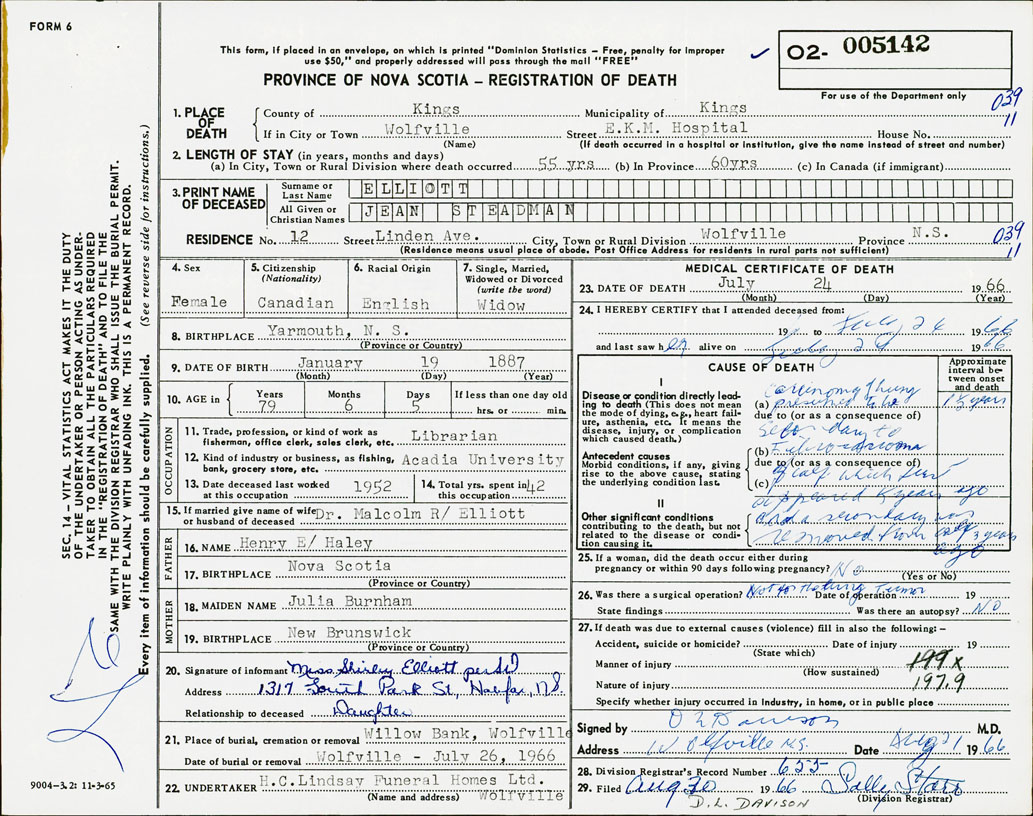 FORM 6
This form, if placed in an envelope, on which is printed "Dominion Statistics – Free, penalty for improper
use $50," and properly addressed will pass through the mail "FREE"
PROVINCE OF NOVA SCOTIA – REGISTRATION OF DEATH
✓ O2- 005142
For use of the Department only
039
11
1. PLACE OF DEATH
County of Kings Municipality of Kings
If in City or Town Wolfville Street E.K.M. Hospital House No.
(Name) (If death occurred in a hospital or institution, give the name instead of street and number)
2. LENGTH OF STAY (in years, months and days)
(a) In City, Town or Rural Division where death occurred 55 yrs (b) In Province 60yrs (c) In Canada (if immigrant)
3. PRINT NAME OF DECEASED
Surname or Last Name ELLIOTT
All Given or Christian Names JEAN STEADMAN
RESIDENCE No. 12 Street Linden Ave. City, Town or Rural Division Wolfville Province N.S.
(Residence means usual place of abode. Post Office Address for residents in rural parts not sufficient)
039
11
4. Sex Female
5. Citizenship (Nationality) Canadian
6. Racial Origin English
7. Single, Married, Widowed or Divorced (write the word) Widow
8. BIRTHPLACE Yarmouth, N. S.
(Province or Country)
9. DATE OF BIRTH January 19 1887
(Month) (Day) (Year)
10. AGE in Years 79 Months 6 Days 5 If less than one day old hrs. or min.
OCCUPATION
11. Trade, profession, or kind of work as fisherman, office clerk, sales clerk, etc. Librarian
12. Kind of industry or business, as fishing, bank, grocery store, etc. Acadia University
13. Date deceased last worked at this occupation 1952
14. Total yrs. spent in this occupation 42
15. If married give name of wife or husband of deceased Dr. Malcolm R/ Elliott
FATHER
16. NAME Henry E/ Haley
17. BIRTHPLACE Nova Scotia
(Province or Country)
MOTHER
18. MAIDEN NAME Julia Burnham
19. BIRTHPLACE New Brunswick
(Province or Country)
20. Signature of informant Miss Shirley Elliott
Address 1317 South Park St, Halifax, NS.
Relationship to deceased Daughter
21. Place of burial, cremation or removal Willow Bank, Wolfville
Date of burial or removal Wolfville - July 26, 1966
22. UNDERTAKER H.C.Lindsay Funeral Homes Ltd.
(Name and address) Wolfville
MEDICAL CERTIFICATE OF DEATH
23. DATE OF DEATH July 24 1966
(Month) (Day) (Year)
24. I HEREBY CERTIFY that I attended deceased from:
19 to July 24 1966
and last saw her alive on July 24 1966
CAUSE OF DEATH
Approximate interval between onset and death
I
Disease or condition directly leading to death (This does not mean the mode of dying, e.g., heart failure, asthenia, etc. It means the disease, injury, or complication which caused death.)
(a) Carcinoma of lung
due to (or as a consequence of)
secondary to
Antecedent causes
Morbid conditions, if any, giving rise to the above cause, stating the underlying condition last.
(b) Fibrosarcoma
due to (or as a consequence of)
(c) of calf which first
appeared years ago
II
Other significant conditions contributing to the death, but not related to the disease or condition causing it.
and a secondary was
removed from calf 3 years
ago
25. If a woman, did the death occur either during pregnancy or within 90 days following pregnancy? No
(Yes or No)
26. Was there a surgical operation? Not for lung Tumor Date of operation 19
State findings Was there an autopsy? NO
27. If death was due to external causes (violence) fill in also the following: –
Accident, suicide or homicide? Date of injury 19
(State which)
Manner of injury 199 x
(How sustained)
Nature of injury 197.9
Specify whether injury occurred in industry, in home, or in public place
Signed by D L Davison M.D.
Address Wolfville N.S. Date 1966
28. Division Registrar's Record Number 655
29. Filed Aug 20 1966 Sally Starr
D.L. DAVISON (Division Registrar)
SEC. 14 – VITAL STATISTICS ACT MAKES IT THE DUTY
OF THE UNDERTAKER OR PERSON ACTING AS UNDER-
TAKER TO OBTAIN ALL THE PARTICULARS REQUIRED
IN THE "REGISTRATION OF DEATH" AND TO FILE THE
SAME WITH THE DIVISION REGISTRAR WHO SHALL ISSUE THE BURIAL PERMIT.
WRITE PLAINLY WITH UNFADING INK. THIS IS A PERMANENT RECORD.
Every item of information should be carefully supplied. (See reverse side for instructions.)
9004–3.2: 11-3-65